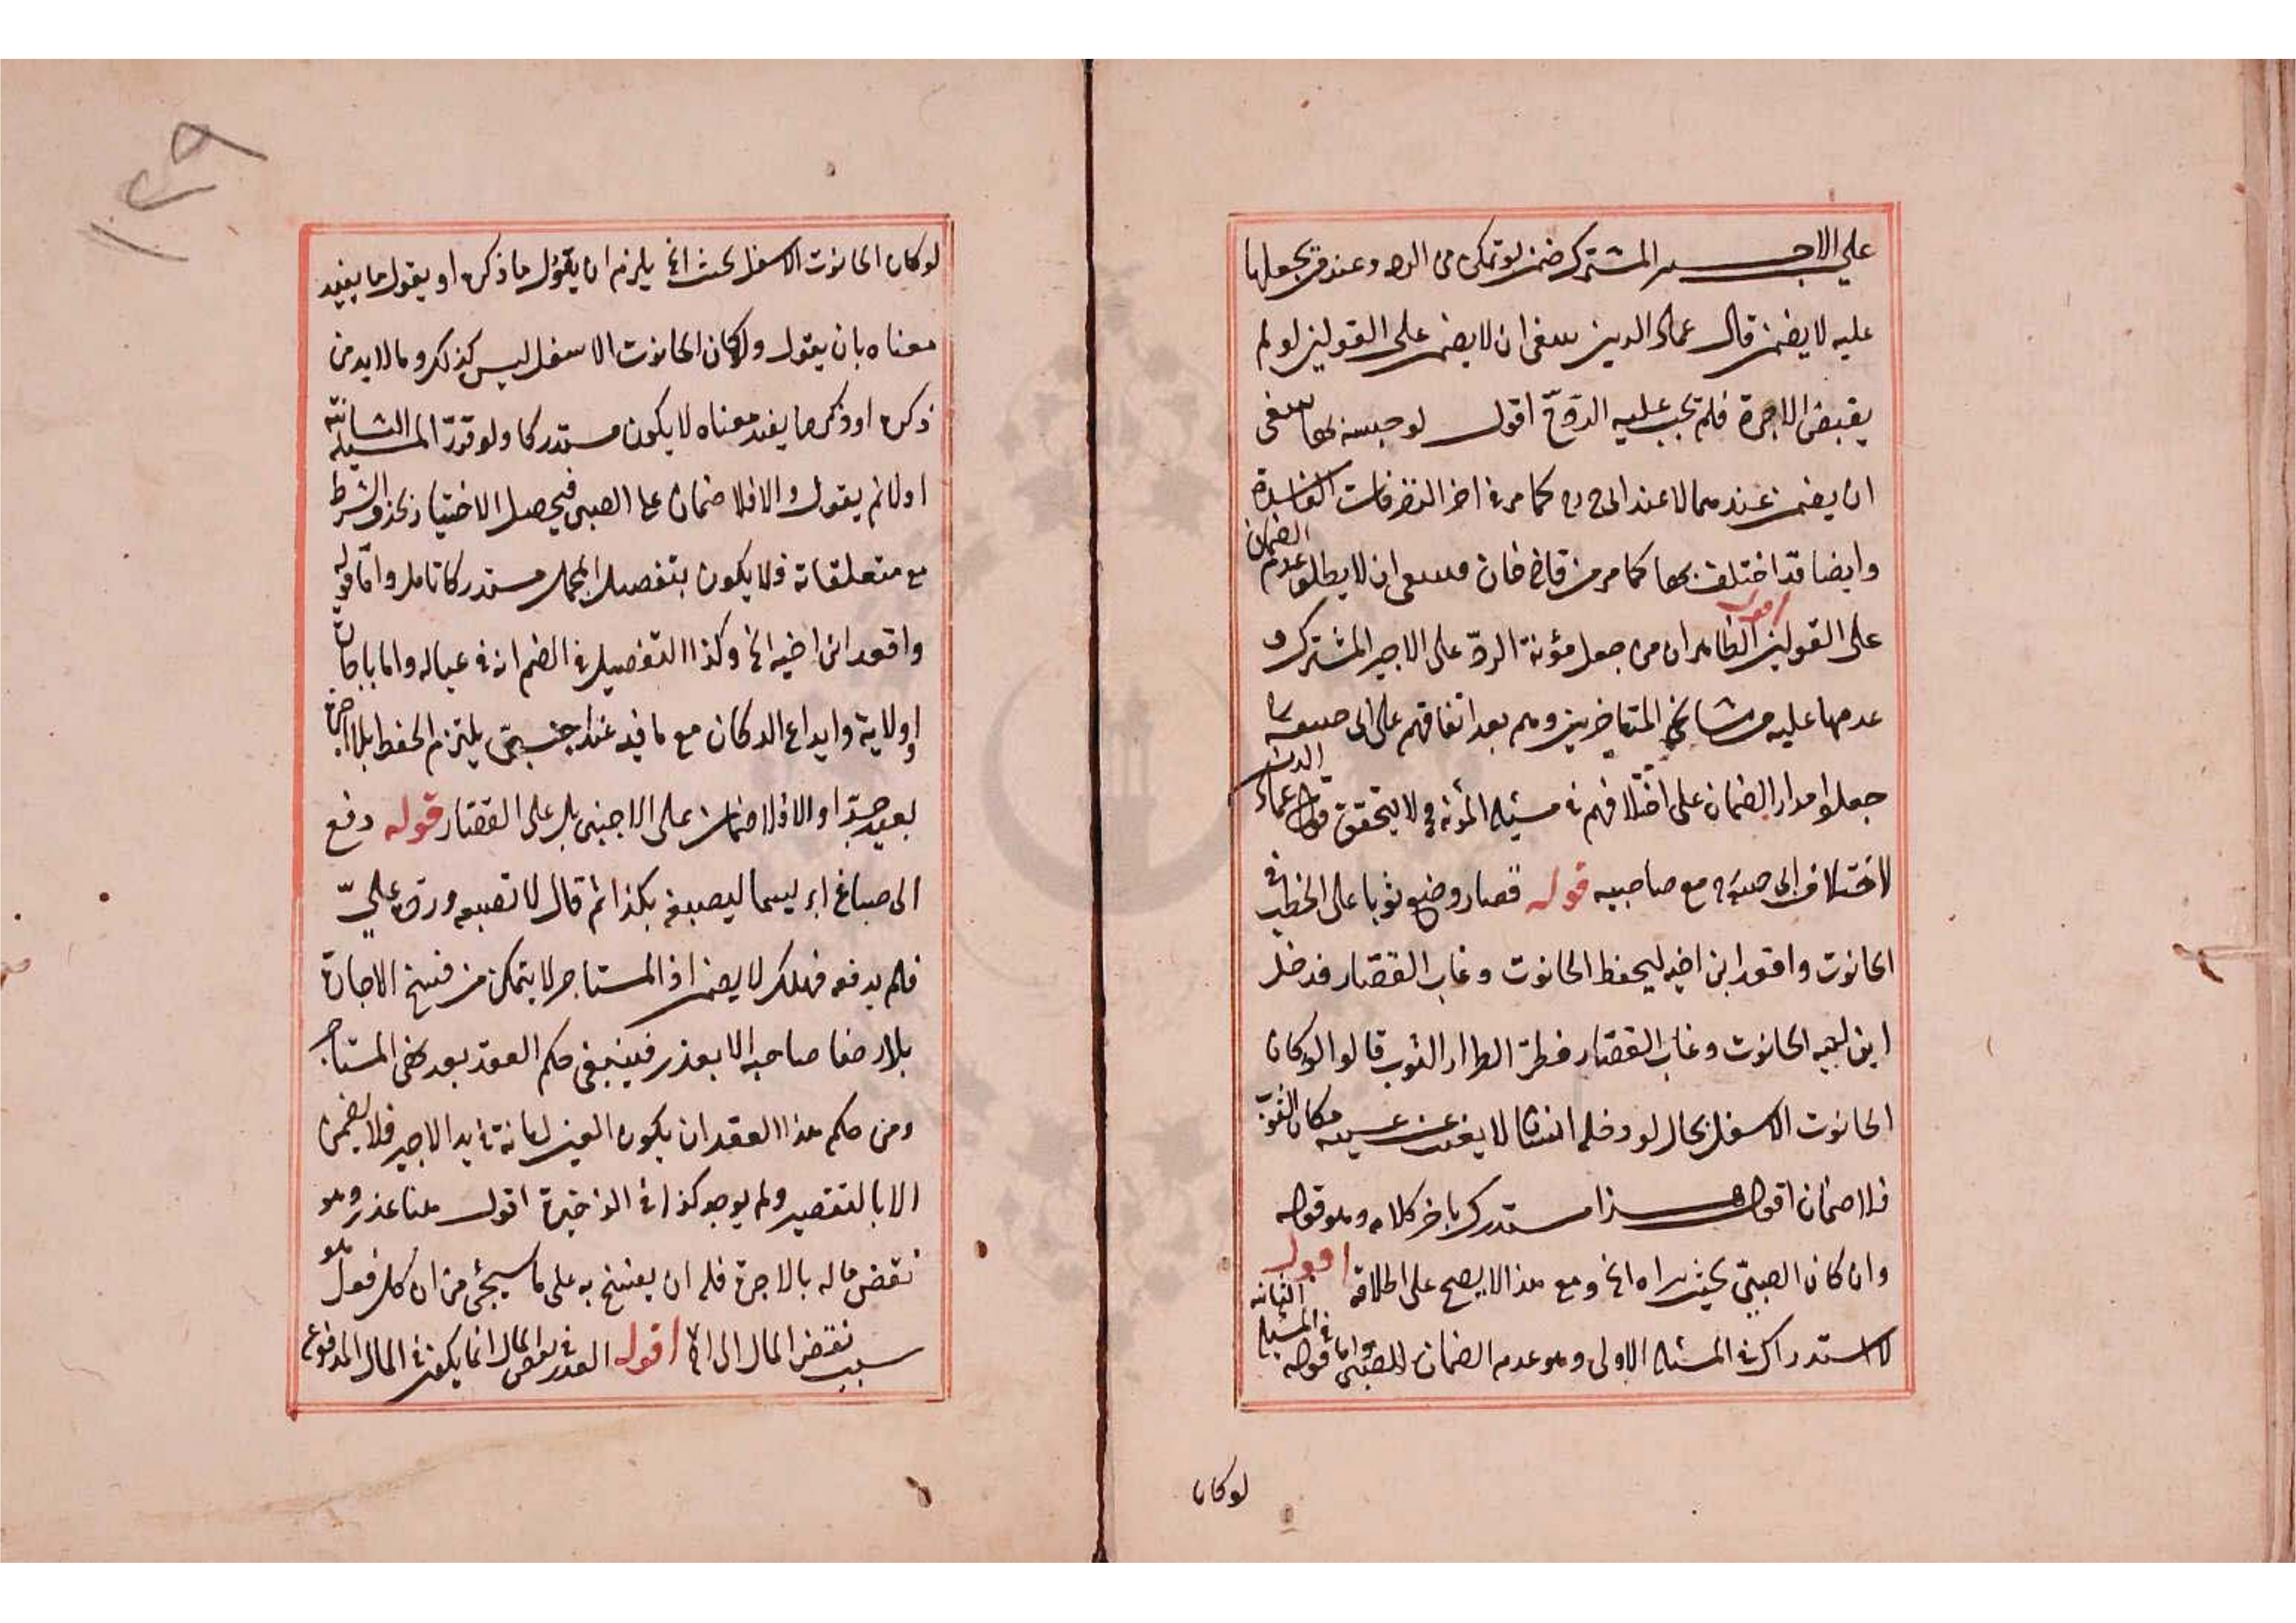 على الاجير المشترك ضمن لو تمكن من الرد وعند من يجعلها
عليه لا يضمن قال عماد الدين ينبغي ان لا يضمن على القولين لو لم
يقبض الاجرة فلم تجب عليه الرد ح اقول لو حبسه بها ينبغي
ان يضمن عندهما لا عند ابي ح رح كما مر في اخر التصرفات الفاسدة
وايضا قد اختلف بها كما مر من قاضي خان فينبغي ان لا يطلق عدم الضمان
على القولين اقول الظاهر ان من جعل مؤنة الرد على الاجير المشترك و
عدمها عليه من مشايخ المتاخرين وهم بعد اتفاقهم على ابي حنيفة
جعلوا مدار الضمان على اختلافهم في مسئلة المؤنة فلا يتحقق قول عماد الدين
لاختلاف ابي حنيفة مع صاحبيه قوله قصار وضع ثوبا على الخطب في
الحانوت واقعد ابن اخيه ليحفظ الحانوت وغاب القصار فدخل
ابن اخيه الحانوت وغاب القصار فطرّ الطرار الثوب قالوا لو كان
الحانوت الاسفل بحال لو دخله انسان لا يغيب عن عينيه مكان الثوب
فلا ضمان اقول هذا مستدرك باخر كلامه وهو قوله
وان كان الصبيّ بحيث يراه الخ ومع هذا لا يصح على اطلاقه اقول
لا استدراك في المسئلة الاولى وهو عدم الضمان للصبي واما قوله في المسئلة الثانية
لو كان
لو كان الحانوت الاسفل بحيث الخ يلزم ان يقول ما ذكره او يقول ما يفيد
معناه بان يقول ولو كان الحانوت الاسفل ليس كذلك وما لا بد من
ذكره او ذكر ما يفيد معناه لا يكون مستدركا ولو قرّر المسئلة الثانية
اولا ثم يقول والا فلا ضمان على الصبي فيحصل الاختيار بحذف الشرط
مع متعلقاته فلا يكون بتفصيل المجمل مستدركا تامل واما قوله
واقعد ابن اخيه الخ وكذا التفصيل في الضم انه في عياله واما باجارة
او ولاية وايداع الدكان مع ما فيه عند اجنبيّ يلتزم الحفظ بلا اجرة
بعيد جدّا والا فلا ضمان على الاجنبي بل على القصار قوله دفع
الى صباغ ابريسما ليصبغه بكذا ثم قال لا تصبغه وردّه عليّ
فلم يدفعه فهلك لا يضمن اذ المستاجر لا يتمكن من فسخ الاجارة
بلا رضا صاحبه الا بعذر فينبغي حكم العقد بعد نهي المستاجر
ومن حكم هذا العقد ان يكون العين امانة في يد الاجير فلا يضمن
الا بالتقصير ولم يوجد كذا في الذخيرة اقول هنا عذر وهو
نقض ماله بالاجرة فله ان يفسخ به على ما سيجئ من ان كل فعل هو
سبب نقض المال الى اخره اقول العذر في نقض المال انما يكون في المال المدفوع